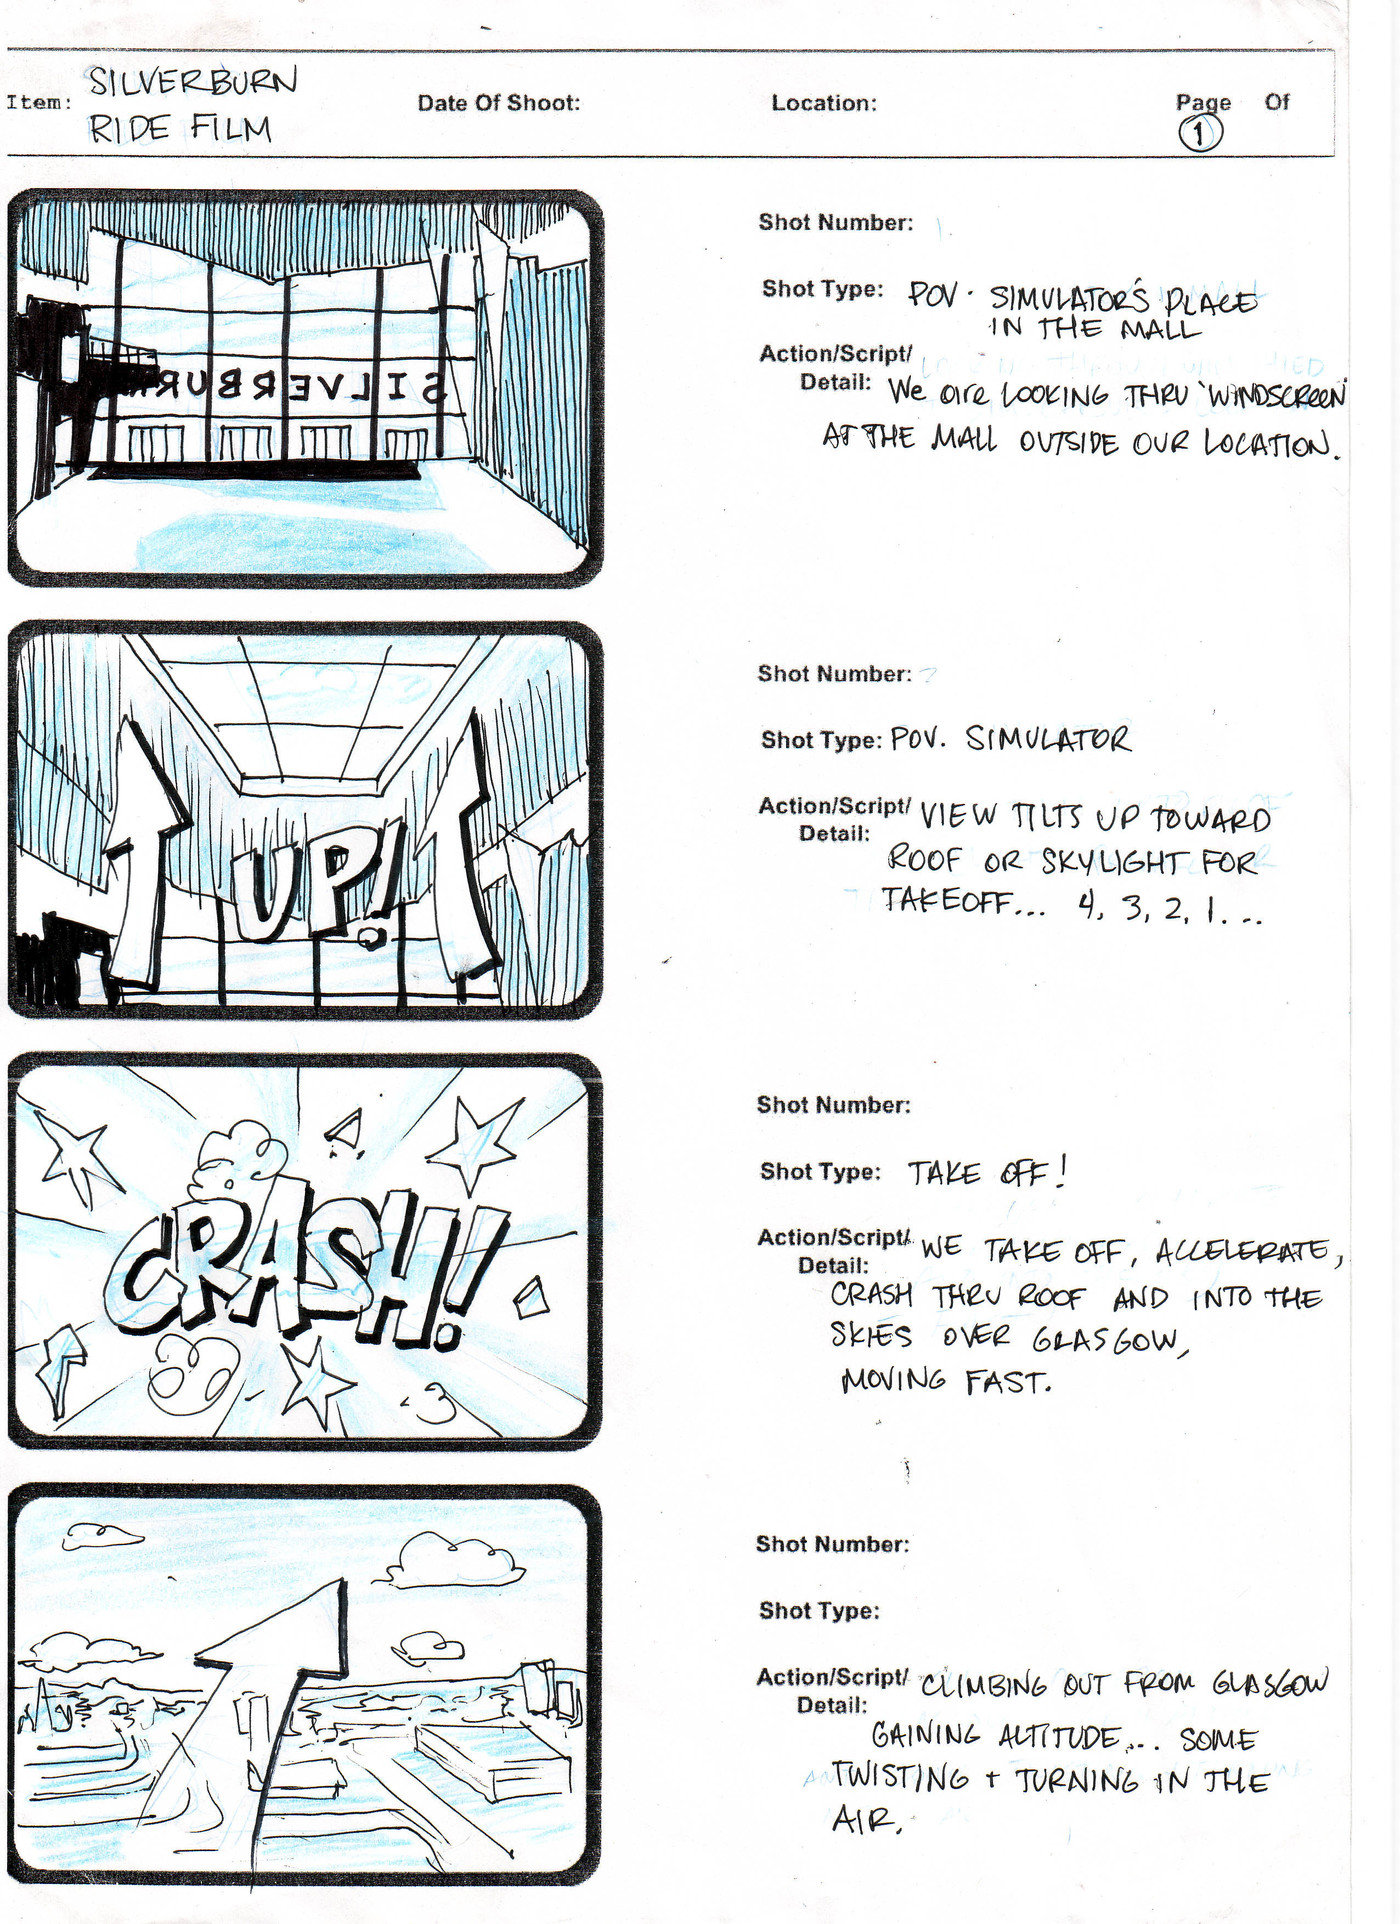 Item: SILVERBURN
RIDE FILM
Date Of Shoot:
Location:
Page Of
1
SILVERBUR
Shot Number: 1.
Shot Type: POV. SIMULATOR'S PLACE
IN THE MALL
Action/Script/
Detail: We are LOOKING THRU 'WINDSCREEN'
AT THE MALL OUTSIDE OUR LOCATION.
UP!
Shot Number: 2
Shot Type: POV. SIMULATOR
Action/Script/ VIEW TILTS UP TOWARD
Detail: ROOF OR SKYLIGHT FOR
TAKEOFF... 4, 3, 2, 1...
CRASH!
Shot Number:
Shot Type: TAKE OFF!
Action/Script/ WE TAKE OFF, ACCELERATE,
Detail:
CRASH THRU ROOF AND INTO THE
SKIES OVER GLASGOW,
MOVING FAST.
Shot Number:
Shot Type:
Action/Script/ CLIMBING OUT FROM GLASGOW
Detail: GAINING ALTITUDE... SOME
TWISTING + TURNING IN THE
AIR.